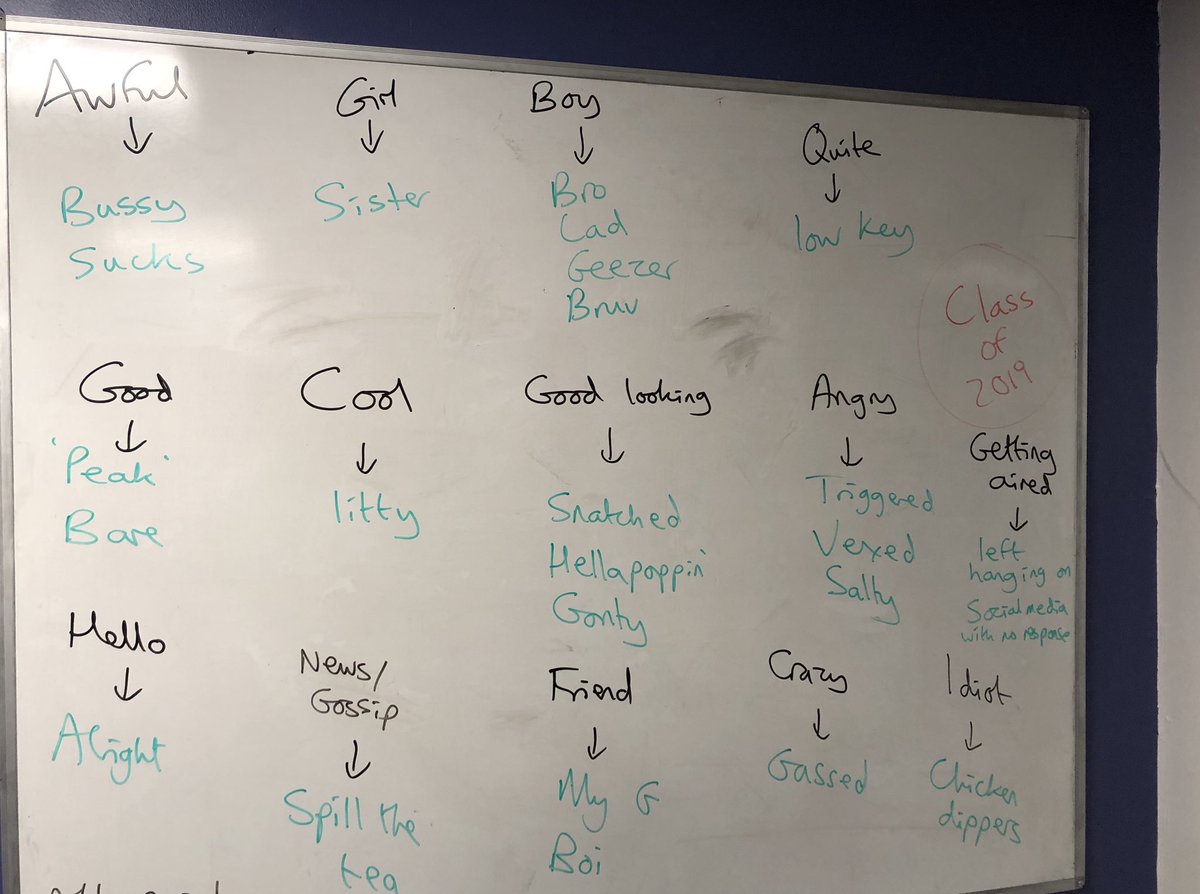 Awful
↓
Bussy
Sucks
Girl
↓
Sister
Boy
↓
Bro
Cad
Geezer
Bruv
Quite
↓
low key
Class
of
2019
Good
↓
'Peak'
Bare
Cool
↓
litty
Good looking
↓
Snatched
Hellapoppin'
Gonty
Angry
↓
Triggered
Vexed
Salty
Getting
aired
↓
left
hanging on
Social media
with no response
Hello
↓
Alright
News/
Gossip
↓
Spill the
tea
Friend
↓
My G
Boi
Crazy
↓
Gassed
Idiot
↓
Chicken
dippers